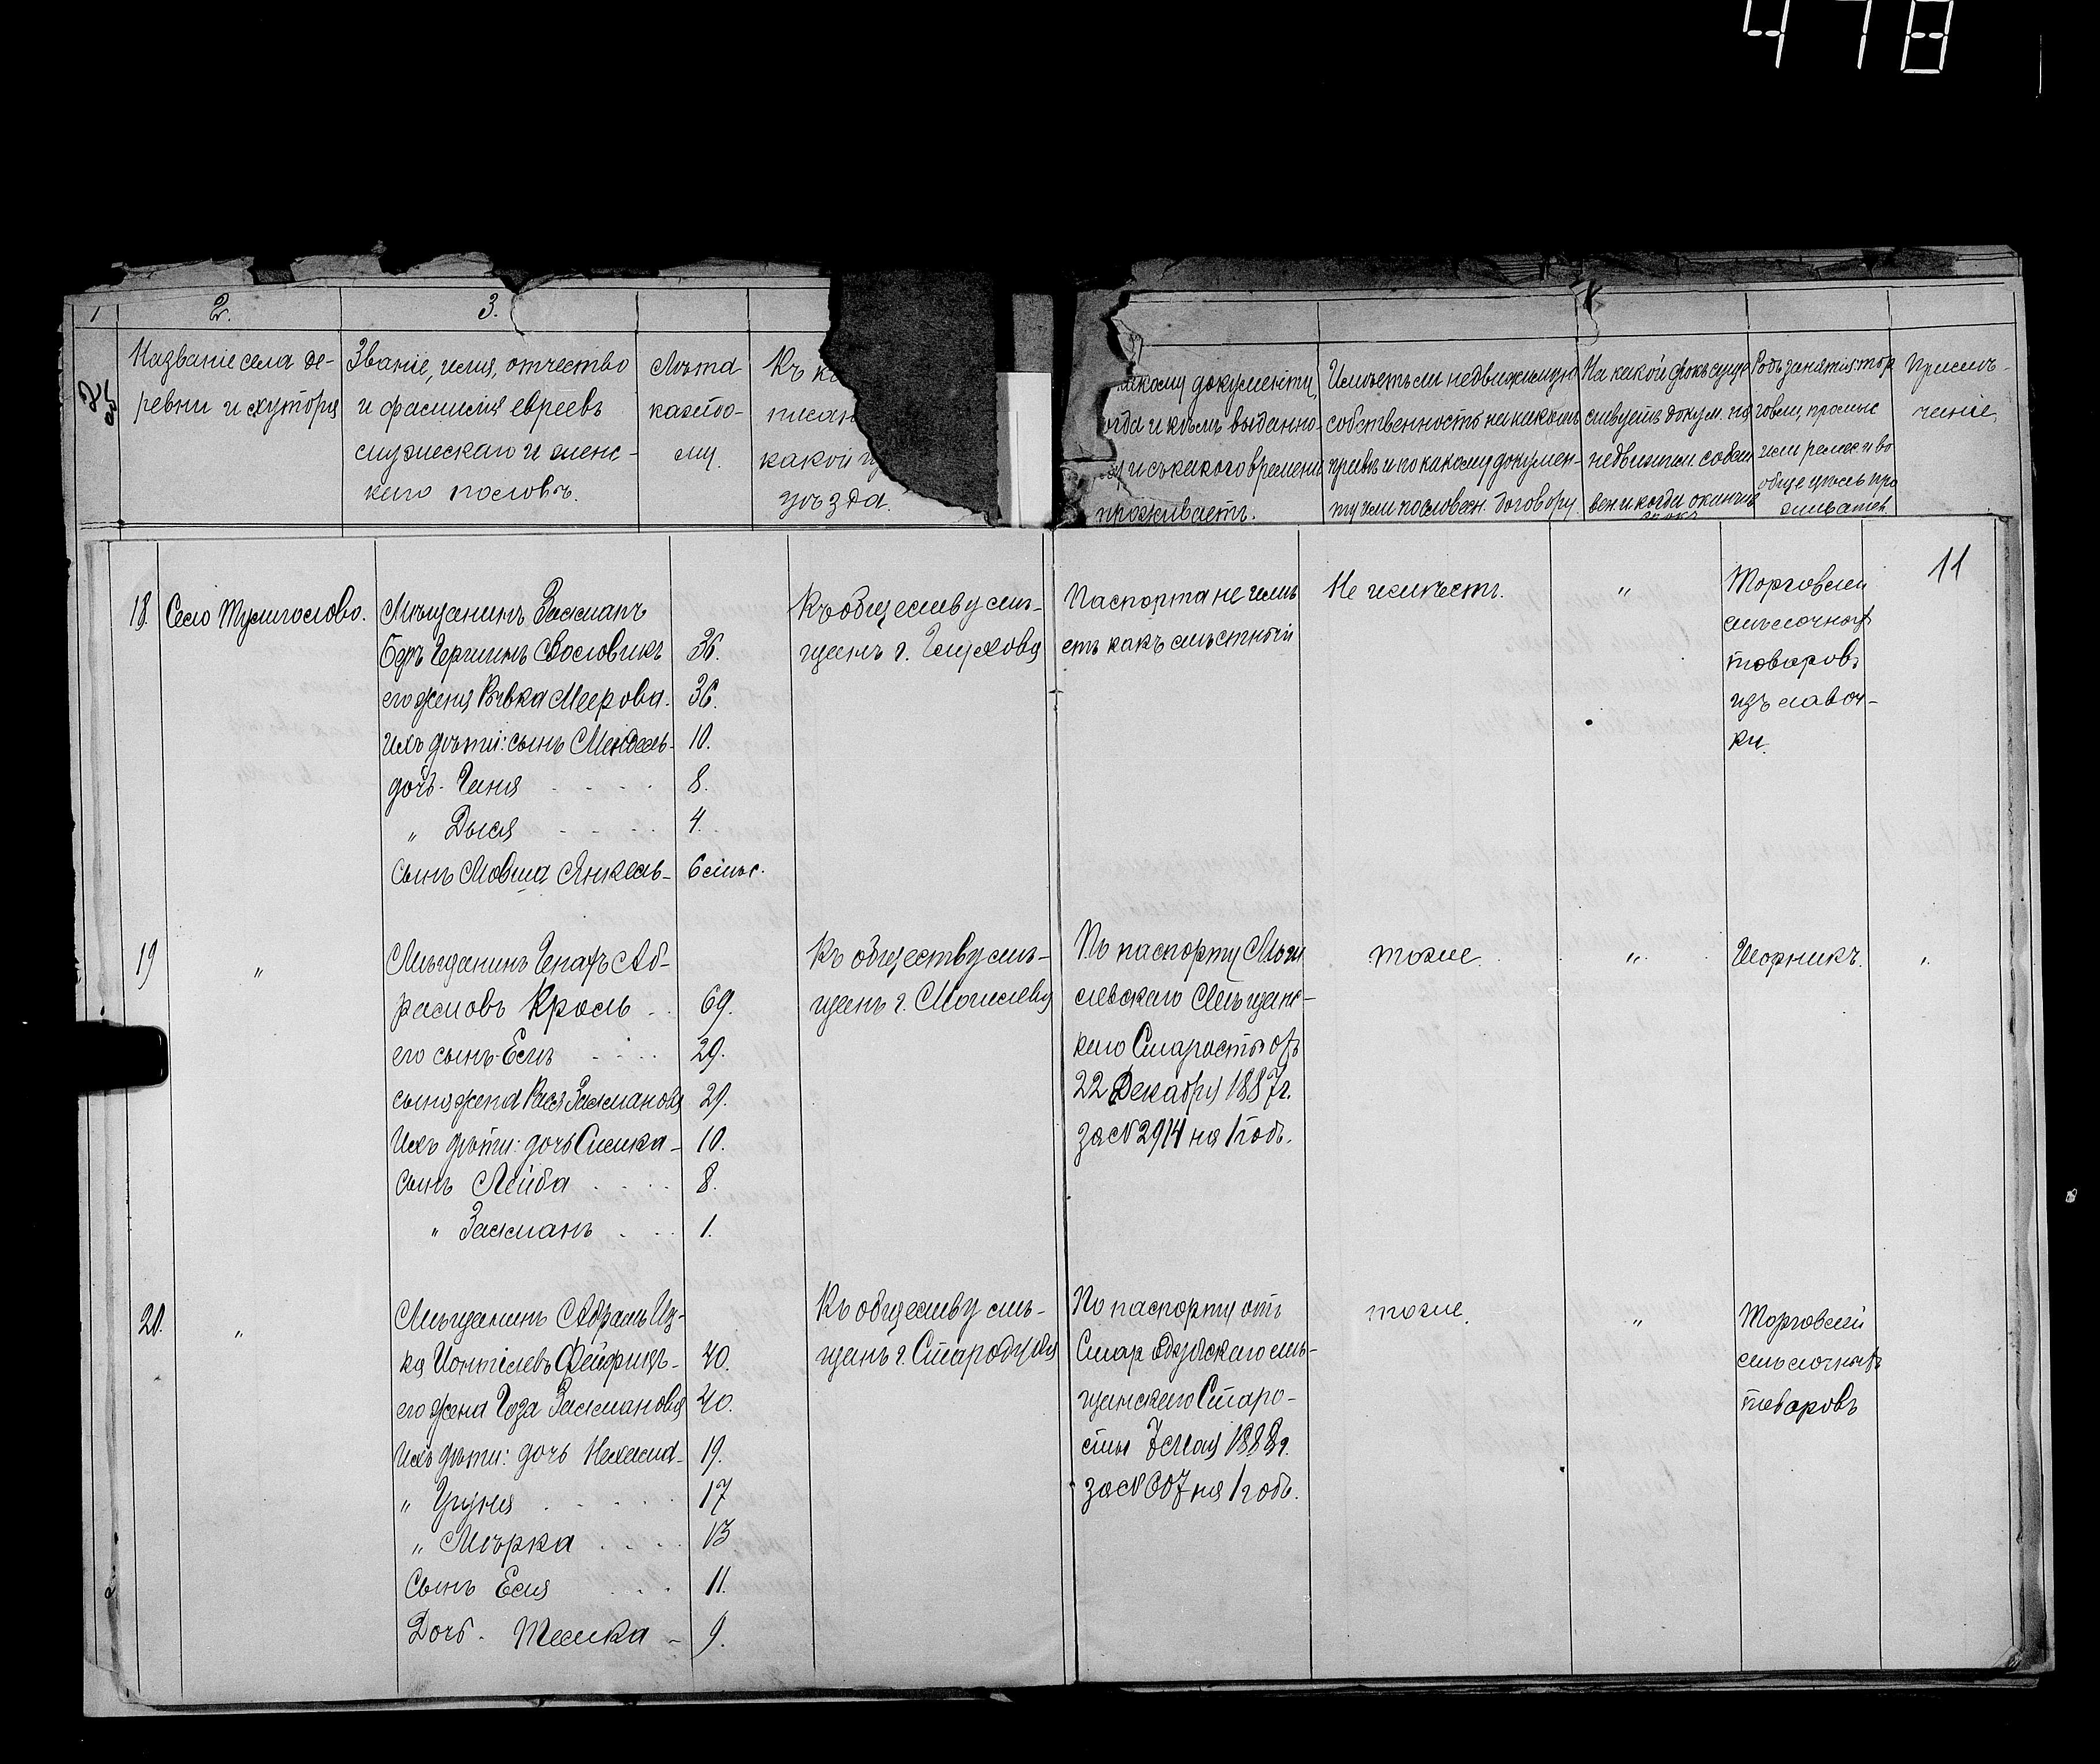 478
1
2.
3.
№
Названіе села де-
ревни и хутора
Званіе, имя, отчество
и фамилія евреевъ
мужескаго и женс-
каго половъ.
Лѣта
каждо-
му.
Къ ка
писан
какой г
уѣзда.
какому документу
когда и кѣмъ выданно-
му и съ какого времени
проживаетъ.
Имѣетъ ли недвижимую
собственность на какомъ
правѣ и по какому докумен-
ту или пословесн. договору
На какой срокъ суще
ствуетъ докум. на
недвижим. собств
вен. и когда оканчив
срока
Родъ занятія тор
говли, промыс
или ремес. и во
обще чѣмъ про
мышляетъ
Примѣ-
чаніе
11
18. Село Тулиголово.
Мѣщанинъ Залманъ
Беръ Гершинъ 
его жена Ривка Меерова. 36.
36.
Ихъ дѣти: сынъ Мендель- 10.
дочь. Ганя 8.
" Дыся 4.
Сынъ Мовша Янкель- 6 мѣс.
Къ обществу мѣ-
щанъ г. Глухова
Паспорта не имѣ
етъ какъ мѣстный
Не имѣетъ.
"
Торговлей
мѣлочныхъ
товаровъ
изъ лавоч-
ки.
19 "
Мѣщанинъ Аб-
рамовъ Кроль 69.
его сынъ 29.
сына жена Рася Залманова 29.
Ихъ дѣти: дочь Симка- 10.
Сынъ Лейба 8.
" Залманъ 1.
Къ обществу мѣ-
щанъ г. Могилева
По паспорту Моги
левскаго Мѣщанс-
каго Старосты отъ
22 Декабря 1887 г.
за № 2914 на 1 годъ.
тоже.
"
Шорникъ.
"
20. "
Мѣщанинъ Абрамъ Иц-
ка 40.
его жена Года Залманова 40.
Ихъ дѣти: дочь Нехама- 19.
" 17
" Мѣрка 13
Сынъ Есля 11.
Дочь. Темка - 9.
Къ обществу мѣ-
щанъ г. Стародуба
По паспорту отъ
Стародубскаго мѣ-
щанскаго Старо-
сты 7 Мая 1888 г.
за № 307 на 1 годъ.
тоже.
"
Торговлей
мѣлочныхъ
товаровъ